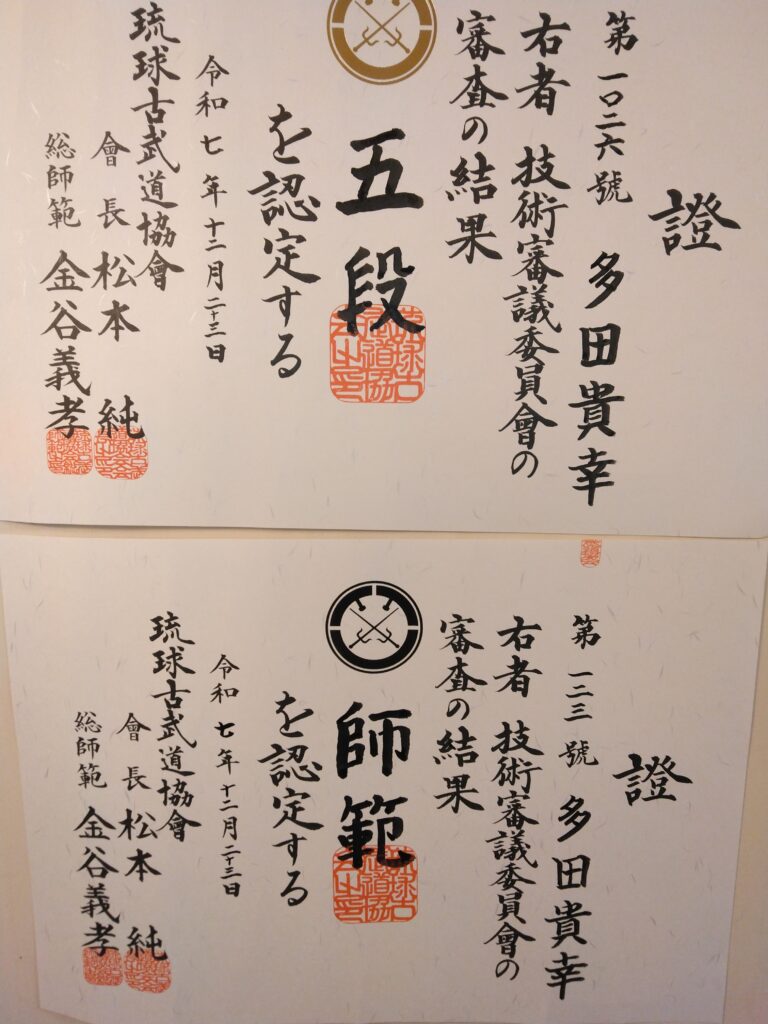 證
第一〇二六號
多田貴幸
右者 技術審議委員會の
審査の結果
五段
を認定する
令和七年十二月二十三日
琉球古武道協會
會長 松本 純
総師範 金谷義孝
證
第一二三號
多田貴幸
右者 技術審議委員會の
審査の結果
師範
を認定する
令和七年十二月二十三日
琉球古武道協會
會長 松本 純
総師範 金谷義孝